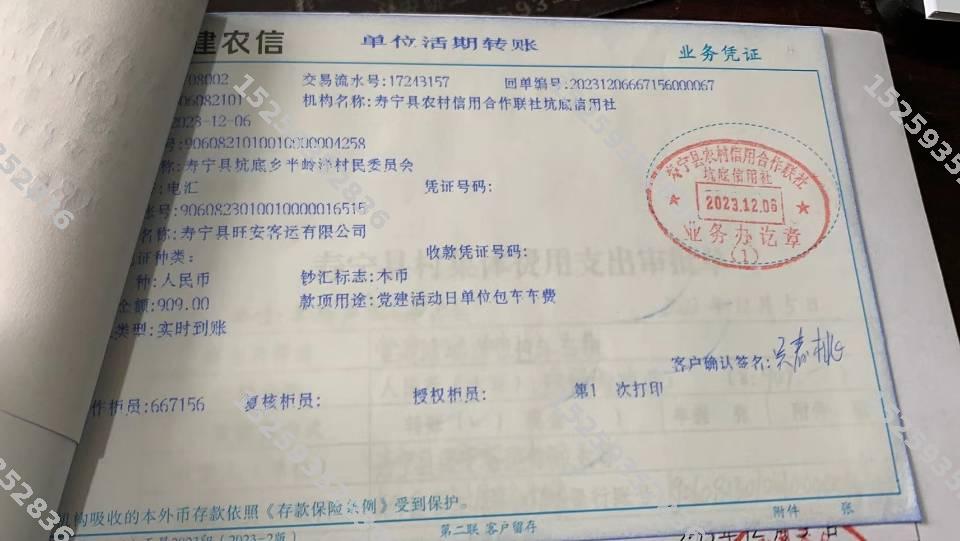 建农信 单位活期转账 业务凭证
08002 交易流水号:17243157 回单编号:20231206667156000067
06082101 机构名称:寿宁县农村信用合作联社坑底信用社
2023-12-06
号:9060821010010000004258
称:寿宁县坑底乡半岭洋村民委员会
电汇 凭证号码:
账号:9060823010010000016515
名称:寿宁县旺安客运有限公司
证种类: 收款凭证号码:
种:人民币 钞汇标志:本币
金额:909.00 款项用途:党建活动日单位包车车费
类型:实时到账
寿宁县农村信用合作联社
坑底信用社
2023.12.06
业务办讫章
(1)
客户确认签名:
作柜员:667156 复核柜员: 授权柜员: 第1 次打印
机构吸收的本外币存款依照《存款保险条例》受到保护。
附件 张
(2023-2版) 第二联 客户留存